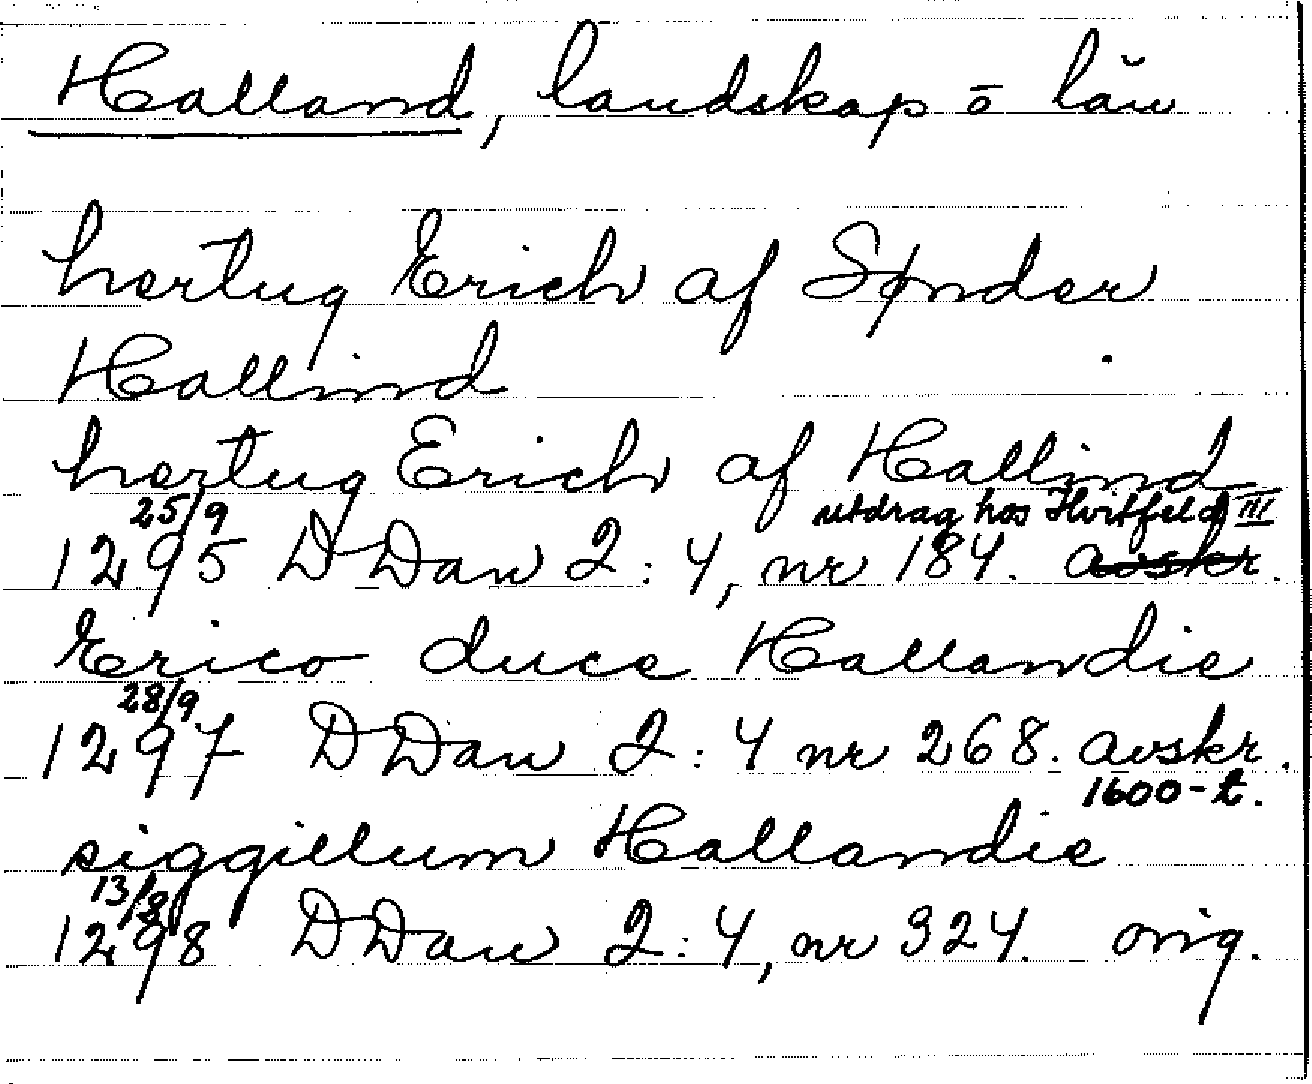 Halland, landskap ō län
hertug Erich af Sønder
Hallind
hertug Erich af Hallind
25/9 utdrag hos Hvitfeld III
1295 DDan 2:4, nr 184. avskr.
Erico duce Hallandie
28/9
1297 DDan 2:4 nr 268. avskr.
1600-t.
siggillum Hallandie
13/8
1298 DDan 2:4, nr 324. orig.